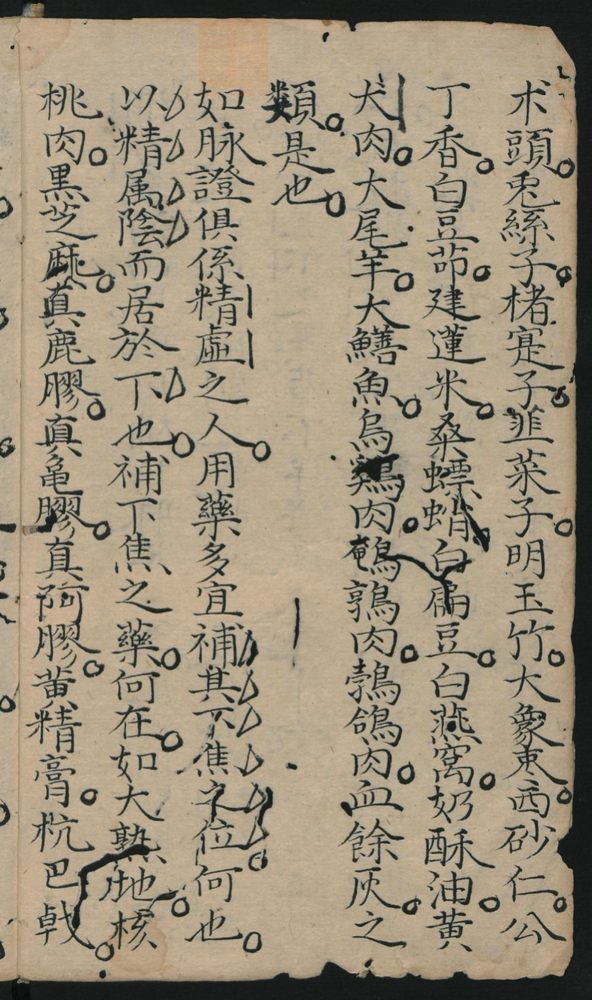 朮頭。兎絲子。楮寔子。韮菜子。明玉竹。大象枣。西砂仁。公
丁香。白豆茆。建蓮米。桑螵蛸。白扁豆。白燕窩。奶酥油。黄
犬肉。大尾羊。大鱔魚。烏鷄肉。鵪鶉肉。鵓鴿肉。血餘灰之
類。是也。
如脉證俱係精虛之人。用藥多宜補其下焦之位。何也。
以精属陰而居於下也。補下焦之藥。何在。如大熟地。核
桃肉。黑芝麻。真鹿膠。真龜膠。真阿膠。黄精膏。杭巴戟。